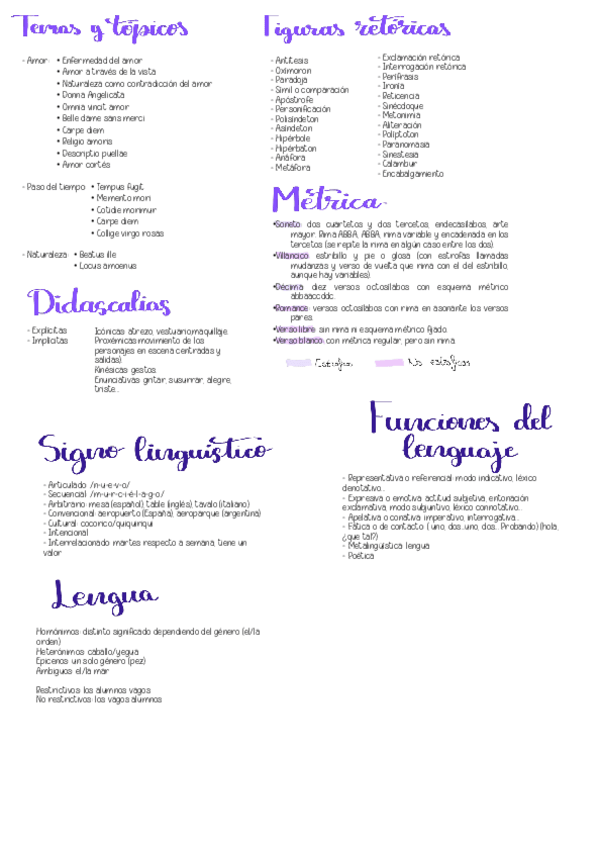 Temas y tópicos
- Amor: • Enfermedad del amor
• Amor a través de la vista
• Naturaleza como contradicción del amor
• Donna Angelicata
• Omnia vincit amor
• Belle dame sans merci
• Carpe diem
• Religio amoris
• Descriptio puellae
• Amor cortés
- Paso del tiempo: • Tempus fugit
• Memento mori
• Cotidie morimur
• Carpe diem
• Collige virgo rosas
- Naturaleza: • Beatus ille
• Locus amoenus
Figuras retóricas
- Antítesis
- Oximoron
- Paradoja
- Símil o comparación
- Apóstrofe
- Personificación
- Polisíndeton
- Asíndeton
- Hipérbole
- Hipérbaton
- Anáfora
- Metáfora
- Exclamación retórica
- Interrogación retórica
- Perífrasis
- Ironía
- Reticencia
- Sinécdoque
- Metonimia
- Aliteración
- Políptoton
- Paranomasia
- Sinestesia
- Calambur
- Encabalgamiento
Métrica
•Soneto: dos cuartetos y dos tercetos, endecasílabos, arte
mayor. Rima ABBA, ABBA, rima variable y encadenada en los
tercetos (se repite la rima en algún caso entre los dos).
•Villancico: estribillo y pie o glosa (con estrofas llamadas
mudanzas y verso de vuelta que rima con el del estribillo,
aunque hay variables).
•Décima: diez versos octosílabos con esquema métrico
abbaaccddc.
•Romance: versos octosílabos con rima en asonante los versos
pares.
•Verso libre: sin rima ni esquema métrico fijado.
•Verso blanco: con métrica regular, pero sin rima.
Estrofas No estróficas
Didascalias
- Explícitas
- Implícitas
Icónicas: atrezo, vestuario,maquillaje.
Proxémicas:movimiento de los
personajes en escena centradas y
salidas).
Kinésicas: gestos.
Enunciativas: gritar, susurrar, alegre,
triste...
Signo lingüístico
- Articulado: /n-u-e-v-o/
- Secuencial: /m-u-r-c-i-é-l-a-g-o/
- Arbitrario: mesa (español), table (inglés), tavalo (italiano)
- Convencional: aeropuerto (España), aeroparque (argentina)
- Cultural: cocorico/quiquiriqui
- Intencional
- Interrelacionado: martes respecto a semana, tiene un
valor
Funciones del
lenguaje
- Representativa o referencial: modo indicativo, léxico
denotativo...
- Expresiva o emotiva: actitud subjetiva, entonación
exclamativa, modo subjuntivo, léxico connotativo...
- Apelativa o conativa: imperativo, interrogativa...
- Fática o de contacto: ( uno, dos...uno, dos... Probando) (hola,
¿que tal?)
- Metalingüística: lengua
- Poética
Lengua
Homónimos: distinto significado dependiendo del género (el/la
orden)
Heterónimos: caballo/yegua
Epicenos: un solo género (pez)
Ambiguos: el/la mar
Restrictivos: los alumnos vagos
No restrictivos: los vagos alumnos